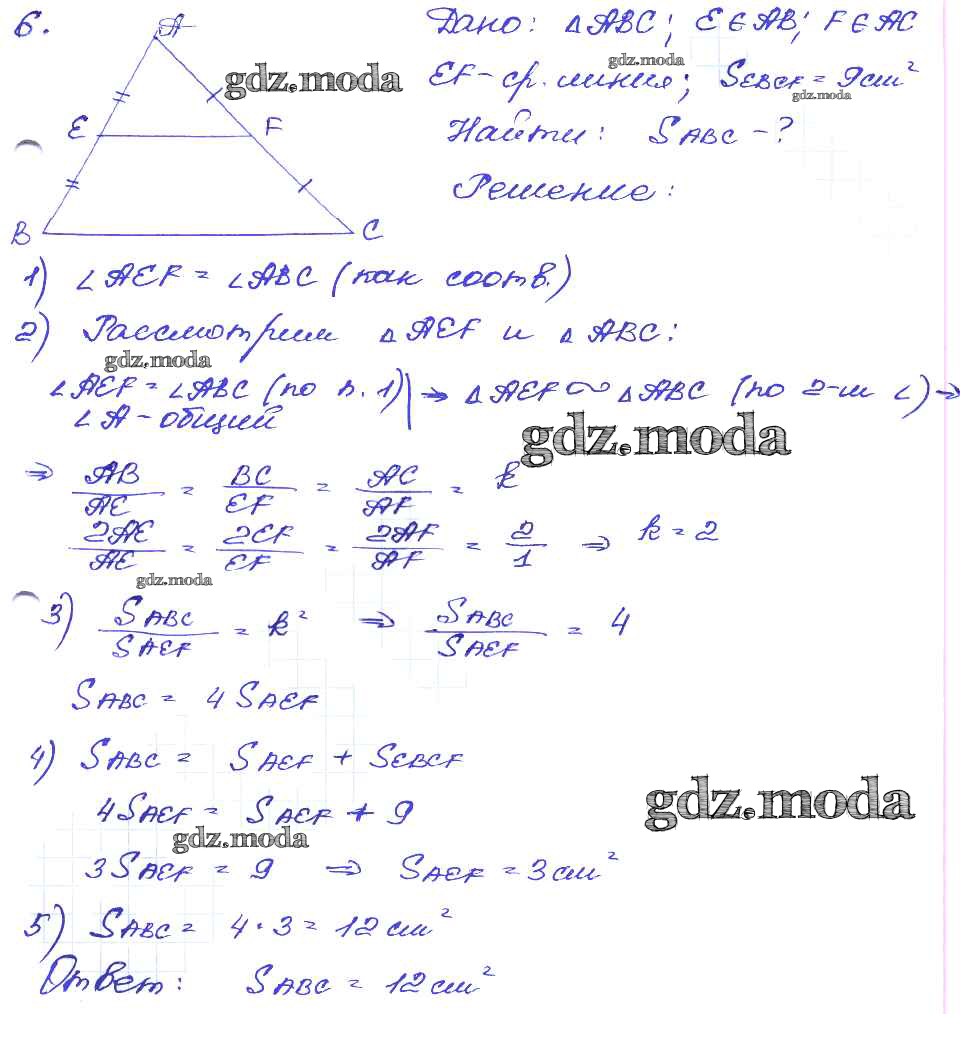 6.
A
E
F
B
C
Дано: △ABC; E∈AB; F∈AC
EF-ср. линия; S EBCF = 9 см²
Найти: S ABC - ?
Решение:
gdz.moda
gdz.moda
gdz.moda
1) ∠AEF = ∠ABC (как соотв.)
2) Рассмотрим △AEF и △ABC:
gdz.moda
∠AEF = ∠ABC (по п. 1) | → △AEF ∾ △ABC (по 2-м ∠) →
∠A - общий
gdz.moda
⇒ AB/AE = BC/EF = AC/AF = k
2AE/AE = 2EF/EF = 2AF/AF = 2/1 ⇒ k = 2
gdz.moda
3) S ABC / S AEF = k² ⇒ S ABC / S AEF = 4
S ABC = 4 S AEF
4) S ABC = S AEF + S EBCF
4S AEF = S AEF + 9
gdz.moda
gdz.moda
3S AEF = 9 ⇒ S AEF = 3 см²
5) S ABC = 4·3 = 12 см²
Ответ: S ABC = 12 см²